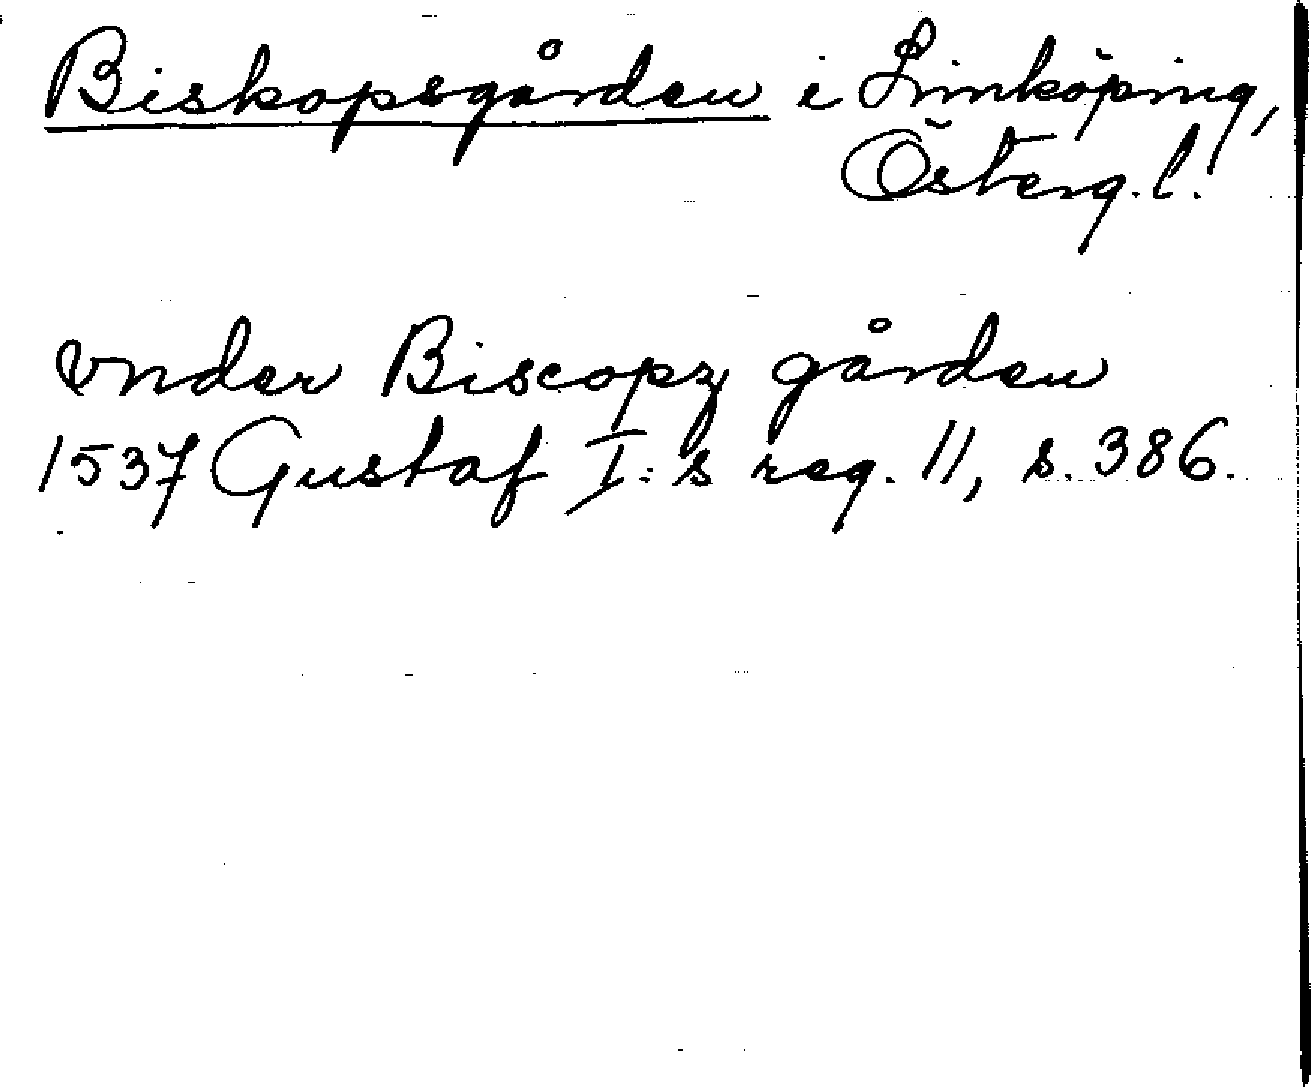 Biskopsgården i Linköping,
Österg. l.
vnder Biscopz gården
1537 Gustaf I:s reg. 11, s. 386.